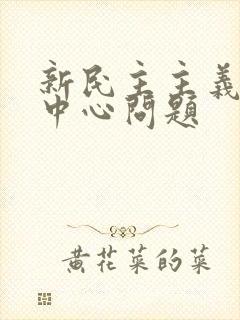 新民主主義
中心問題
黄花菜的菜